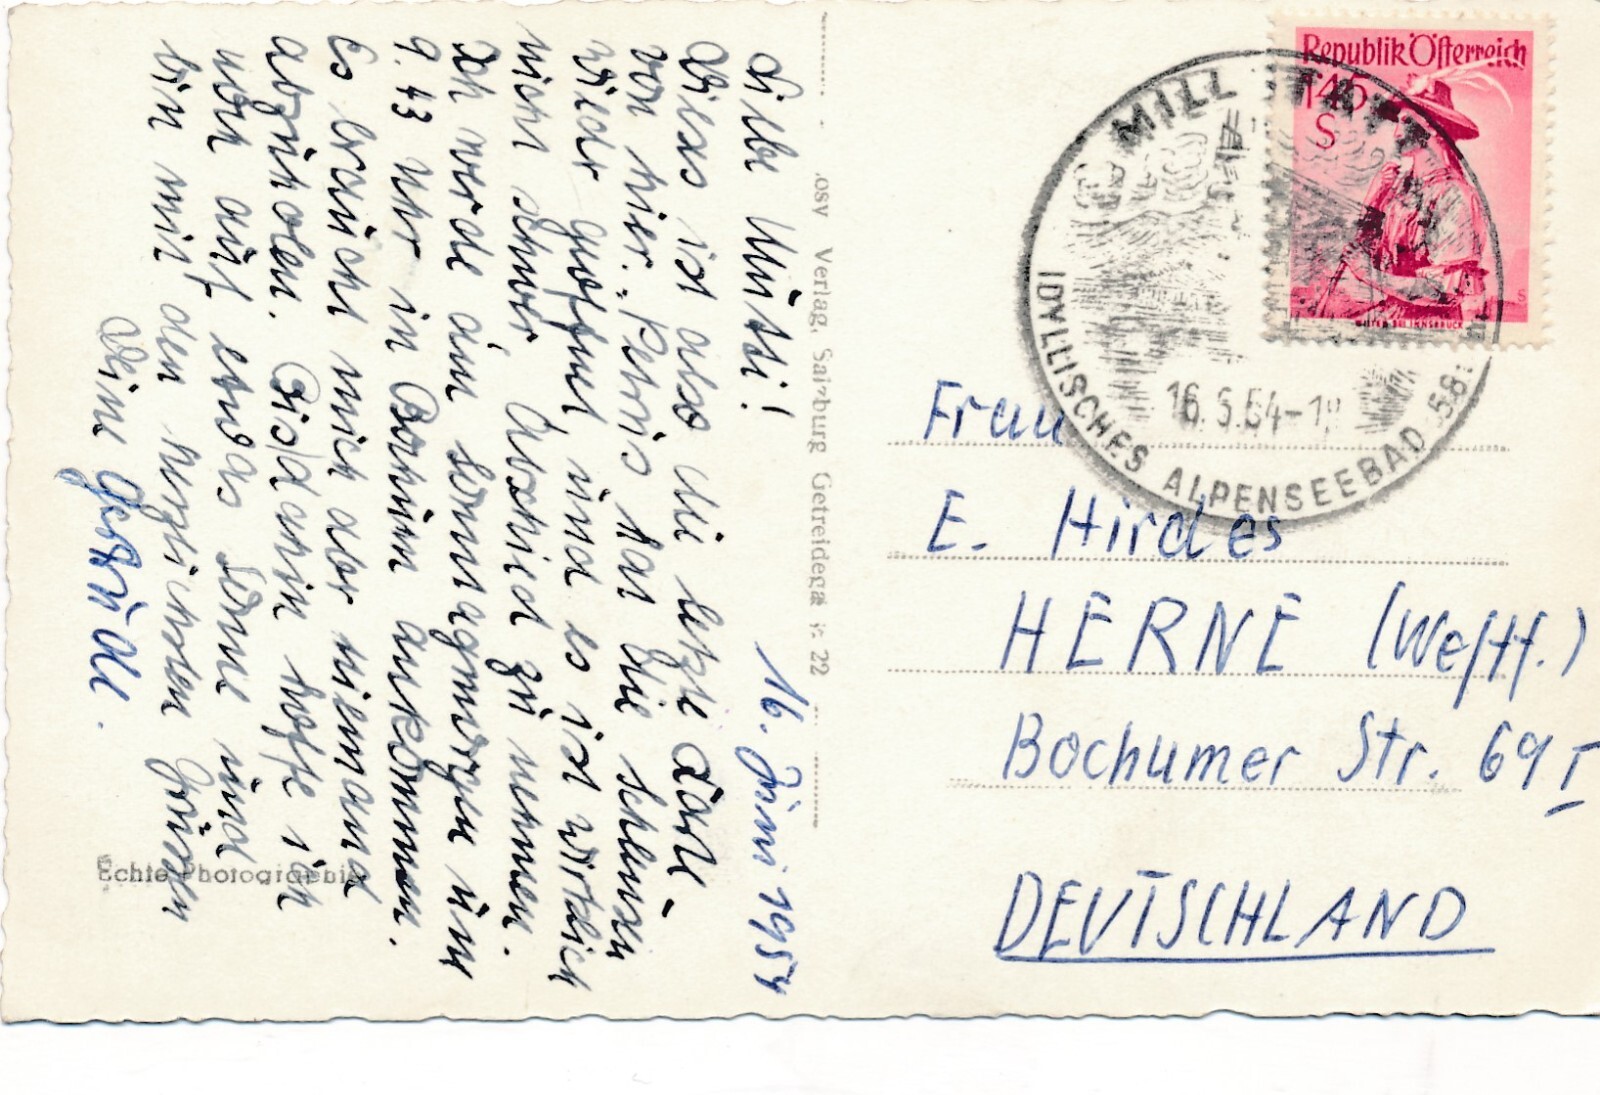 16. Juni 1954
Liebe Mutti!
Dies ist also die letzte Karte
von hier. Petrus hat die Schleusen
wieder geöffnet, und es ist wirklich
nicht schwer, Abschied zu nehmen.
Ich werde am Sonntagmorgen um
9.43 Uhr in Bochum ankommen.
Es braucht mich aber niemand
abzuholen. Bis dahin hoffe ich
noch auf etwas Sonne und
bin mit den herzlichsten Grüßen
Deine
.osv Verlag, Salzburg Getreidega 22
Echte Photographie
Republik Österreich
1.45
S
WILTEN BEI INNSBRUCK
MILLSTATT
IDYLLISCHES ALPENSEEBAD 58
16.6.54-1
Frau
E. Hirdes
HERNE (Westf.)
Bochumer Str. 69 I
DEUTSCHLAND